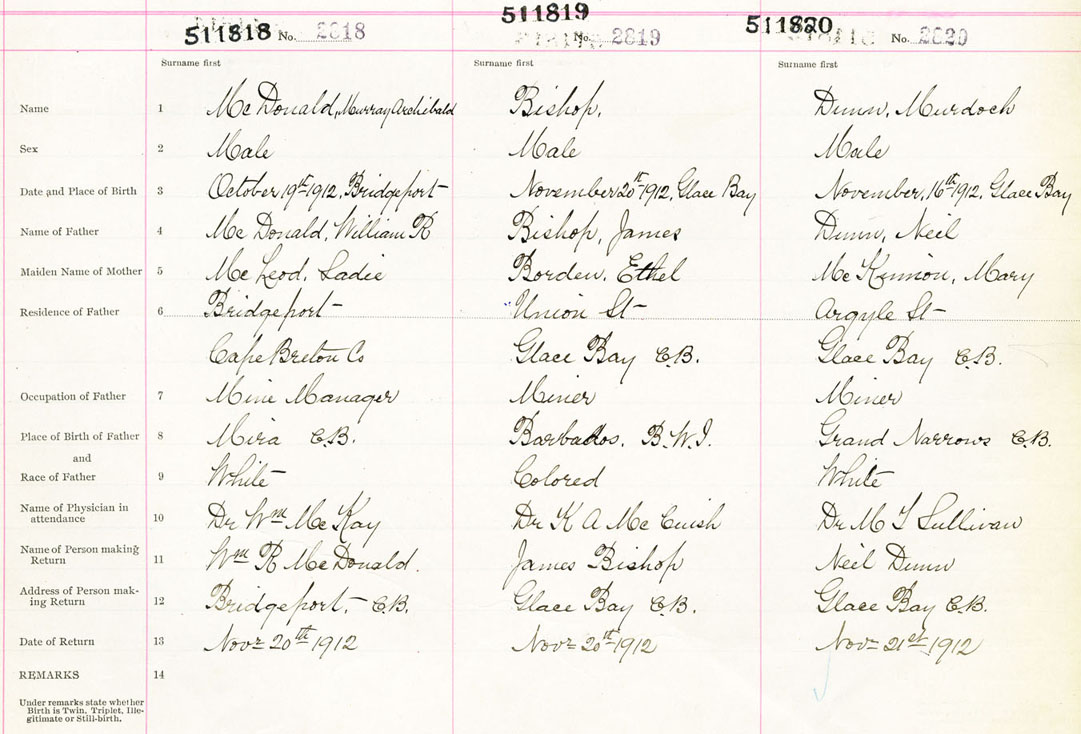 511818 No. 2818 511819 No. 2819 511820 No. 2820
Surname first Surname first Surname first
Name 1 McDonald, Murray Archibald Bishop, Dunn, Murdoch
Sex 2 Male Male Male
Date and Place of Birth 3 October, 19th 1912, Bridgeport November 20th 1912, Glace Bay November, 16th 1912, Glace Bay
Name of Father 4 Mc Donald, William R Bishop, James Dunn, Neil
Maiden Name of Mother 5 Mc Leod, Sadie Borden, Ethel Mc Kinnon, Mary
Residence of Father 6 Bridgeport Union St Argyle St
Cape Breton Co Glace Bay C.B. Glace Bay C.B.
Occupation of Father 7 Mine Manager Miner Miner
Place of Birth of Father 8 Mira C.B. Barbados, B.W.I. Grand Narrows C.B.
and
Race of Father 9 White Colored White
Name of Physician in
attendance 10 Dr Wm Mc Kay Dr K A Mc Cuish Dr M T Sullivan
Name of Person making
Return 11 Wm R McDonald. James Bishop Neil Dunn
Address of Person mak-
ing Return 12 Bridgeport, C.B. Glace Bay C.B. Glace Bay C.B.
Date of Return 13 Novr 20th 1912 Novr 20th 1912 Novr 21st 1912
REMARKS 14
Under remarks state whether
Birth is Twin, Triplet, Ille-
gitimate or Still-birth.